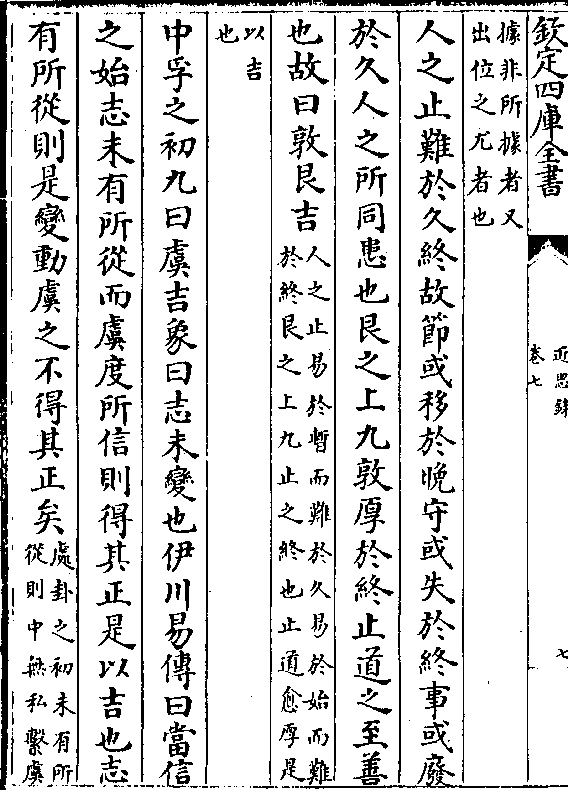 欽定四庫全書
近思錄
卷七
七
據非所據者又
出位之尤者也
人之止難於久終故節或移於晚守或失於終事或廢
於久人之所同患也艮之上九敦厚於終止道之至善
也故曰敦艮吉
人之止易於暫而難於久易於始而難
於終艮之上九止之終也止道愈厚是
以吉
也
中孚之初九曰虞吉象曰志未變也伊川易傳曰當信
之始志未有所從而虞度所信則得其正是以吉也志
有所從則是變動虞之不得其正矣
處卦之初未有所
從則中無私繫虞